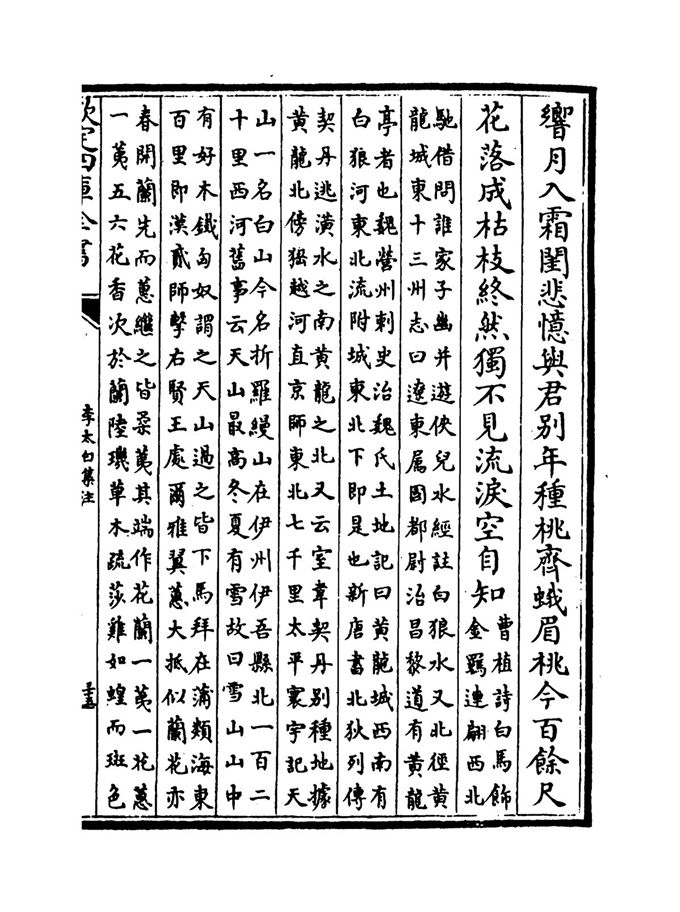 響月入霜閨悲憶與君別年種桃齊蛾眉桃今百餘尺
花落成枯枝終然獨不見流淚空自知
曹植詩白馬飾
金羈連翩西北
馳借問誰家子幽并遊俠兒水經註白狼水又北徑黃
龍城東十三州志曰遼東屬國都尉治昌黎道有黃龍
亭者也魏營州刺史治魏氏土地記曰黃龍城西南有
白狼河東北流附城東北下即是也新唐書北狄列傳
契丹逃潢水之南黃龍之北又云室韋契丹別種地據
黃龍北傍猺越河直京師東北七千里太平寰宇記天
山一名白山今名折羅縵山在伊州伊吾縣北一百二
十里西河舊事云天山最高冬夏有雪故曰雪山山中
有好木鐵匈奴謂之天山過之皆下馬拜在蒲類海東
百里即漢貳師擊右賢王處爾雅翼蕙大抵似蘭花亦
春開蘭先而蕙繼之皆柔荑其端作花蘭一荑一花蕙
一荑五六花香次於蘭陸璣草木疏莎雞如蝗而斑色
欽定四庫全書
李太白集注